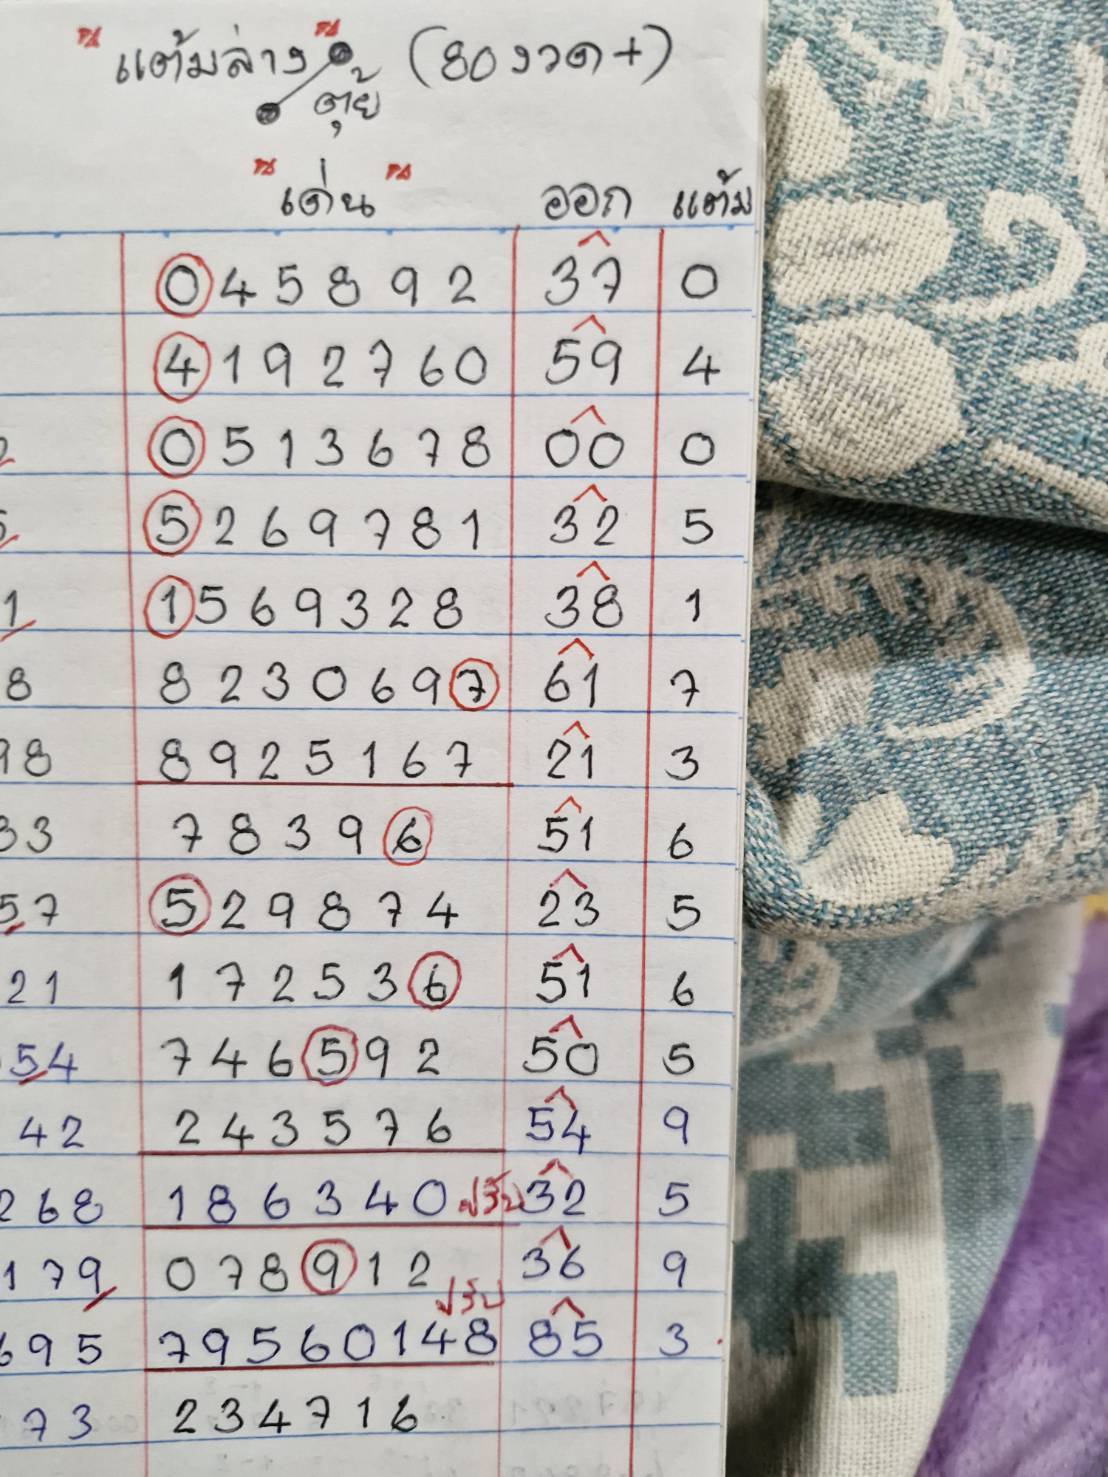 แต้มล่าง (80 งวด +)
ตุ้ย
เด่น ออก แต้ม
0 4 5 8 9 2 37 0
4 1 9 2 7 6 0 59 4
2 0 5 1 3 6 7 8 00 0
5 5 2 6 9 7 8 1 32 5
1 1 5 6 9 3 2 8 38 1
8 8 2 3 0 6 9 7 61 7
98 8 9 2 5 1 6 7 21 3
33 7 8 3 9 6 51 6
57 5 2 9 8 7 4 23 5
21 1 7 2 5 3 6 51 6
54 7 4 6 5 9 2 50 5
42 2 4 3 5 7 6 54 9
268 1 8 6 3 4 0 ปรับ 32 5
179 0 7 8 9 1 2 36 9
ปรับ
695 7 9 5 6 0 1 4 8 85 3
73 2 3 4 7 1 6